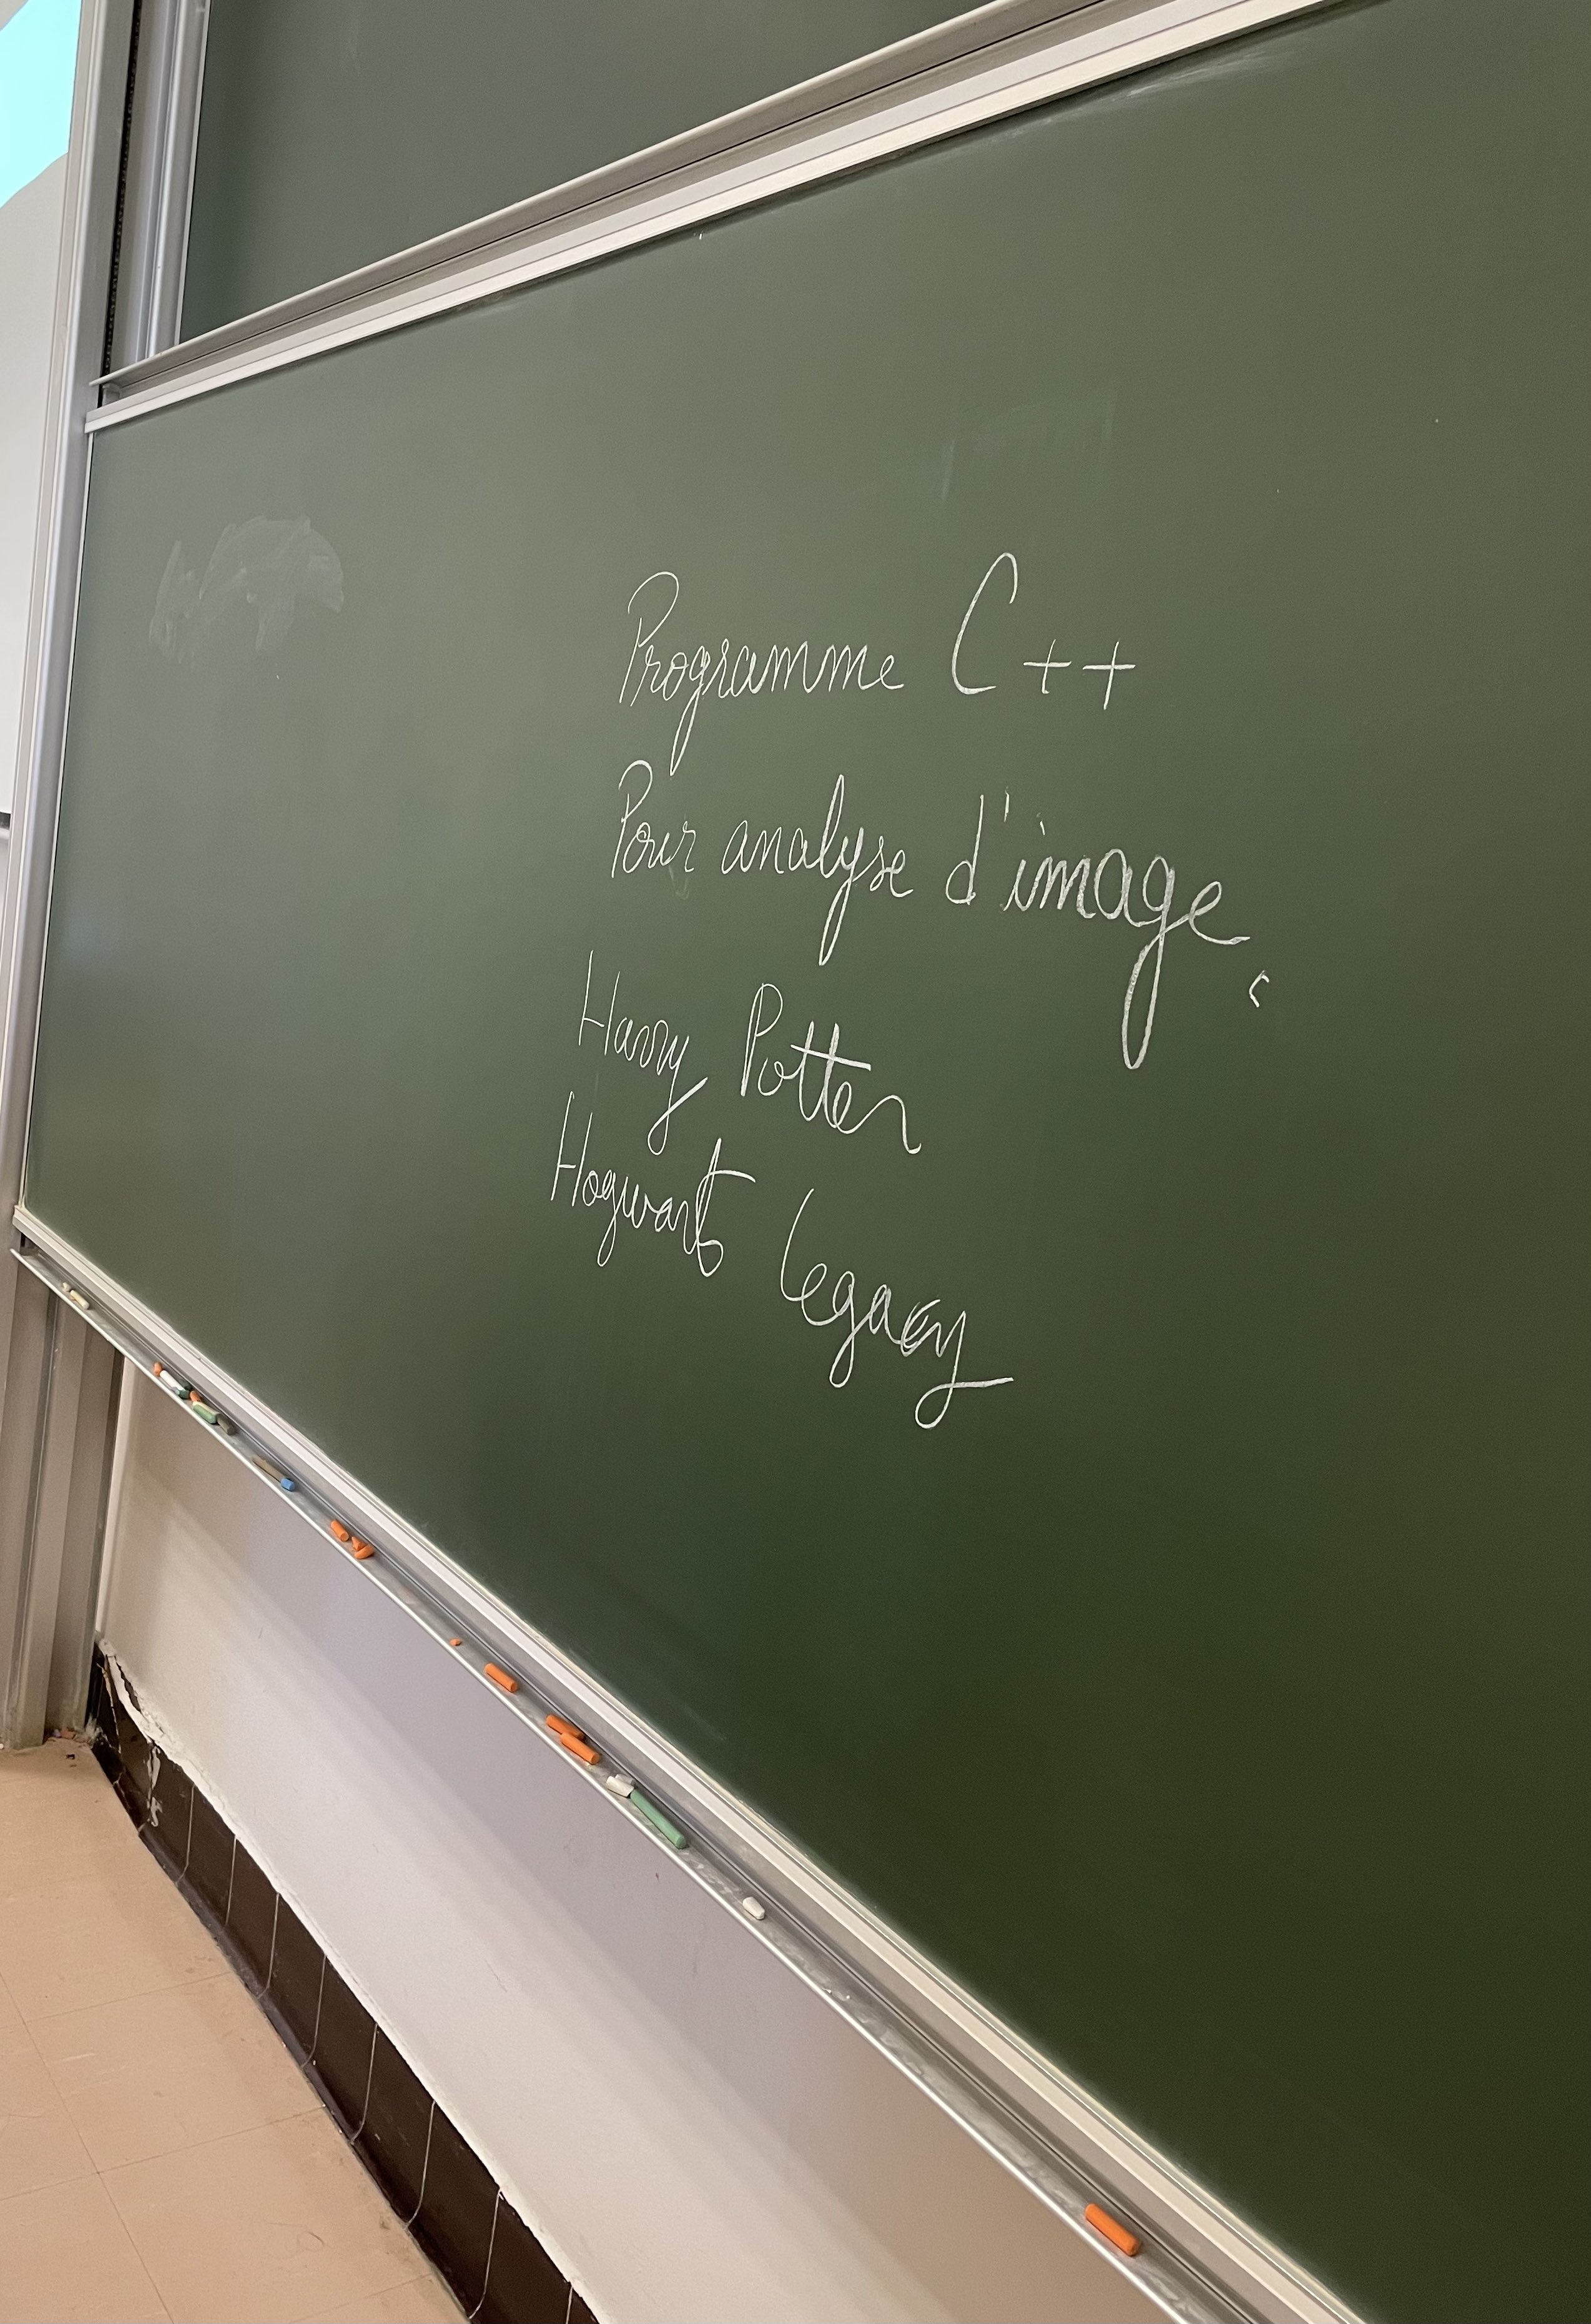 Programme C++
Pour analyse d'image
Harry Potter
Hogwarts Legacy